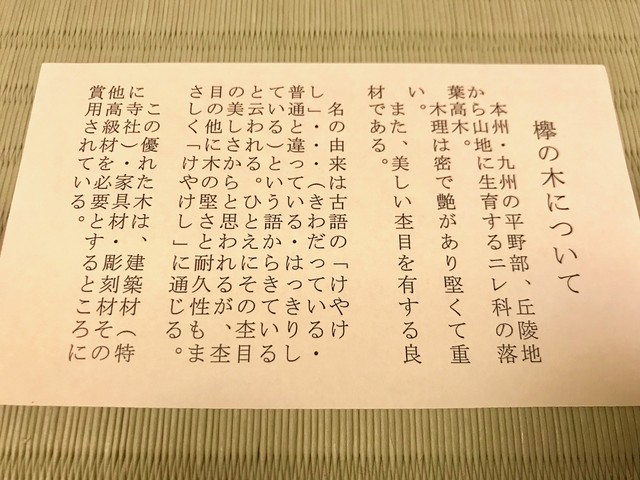 欅の木について
本州・九州の平野部、丘陵地
から山地に生育するニレ科の落
葉高木。
木理は密で艶があり堅くて重
い。
また、美しい杢目を有する良
材である。
名の由来は古語の「けやけ
し」・・(きわだっている・
普通と違っている・はっきりし
ている)という語からきている
と云われる。ひとえにその杢目
の美しさからと思われるが、杢
目の他に木の堅さと耐久性もま
さしく「けやけし」に通じる。
この優れた木は、建築材(特
に寺社)・家具材・彫刻材その
他高級材を必要とするところに
賞用されている。